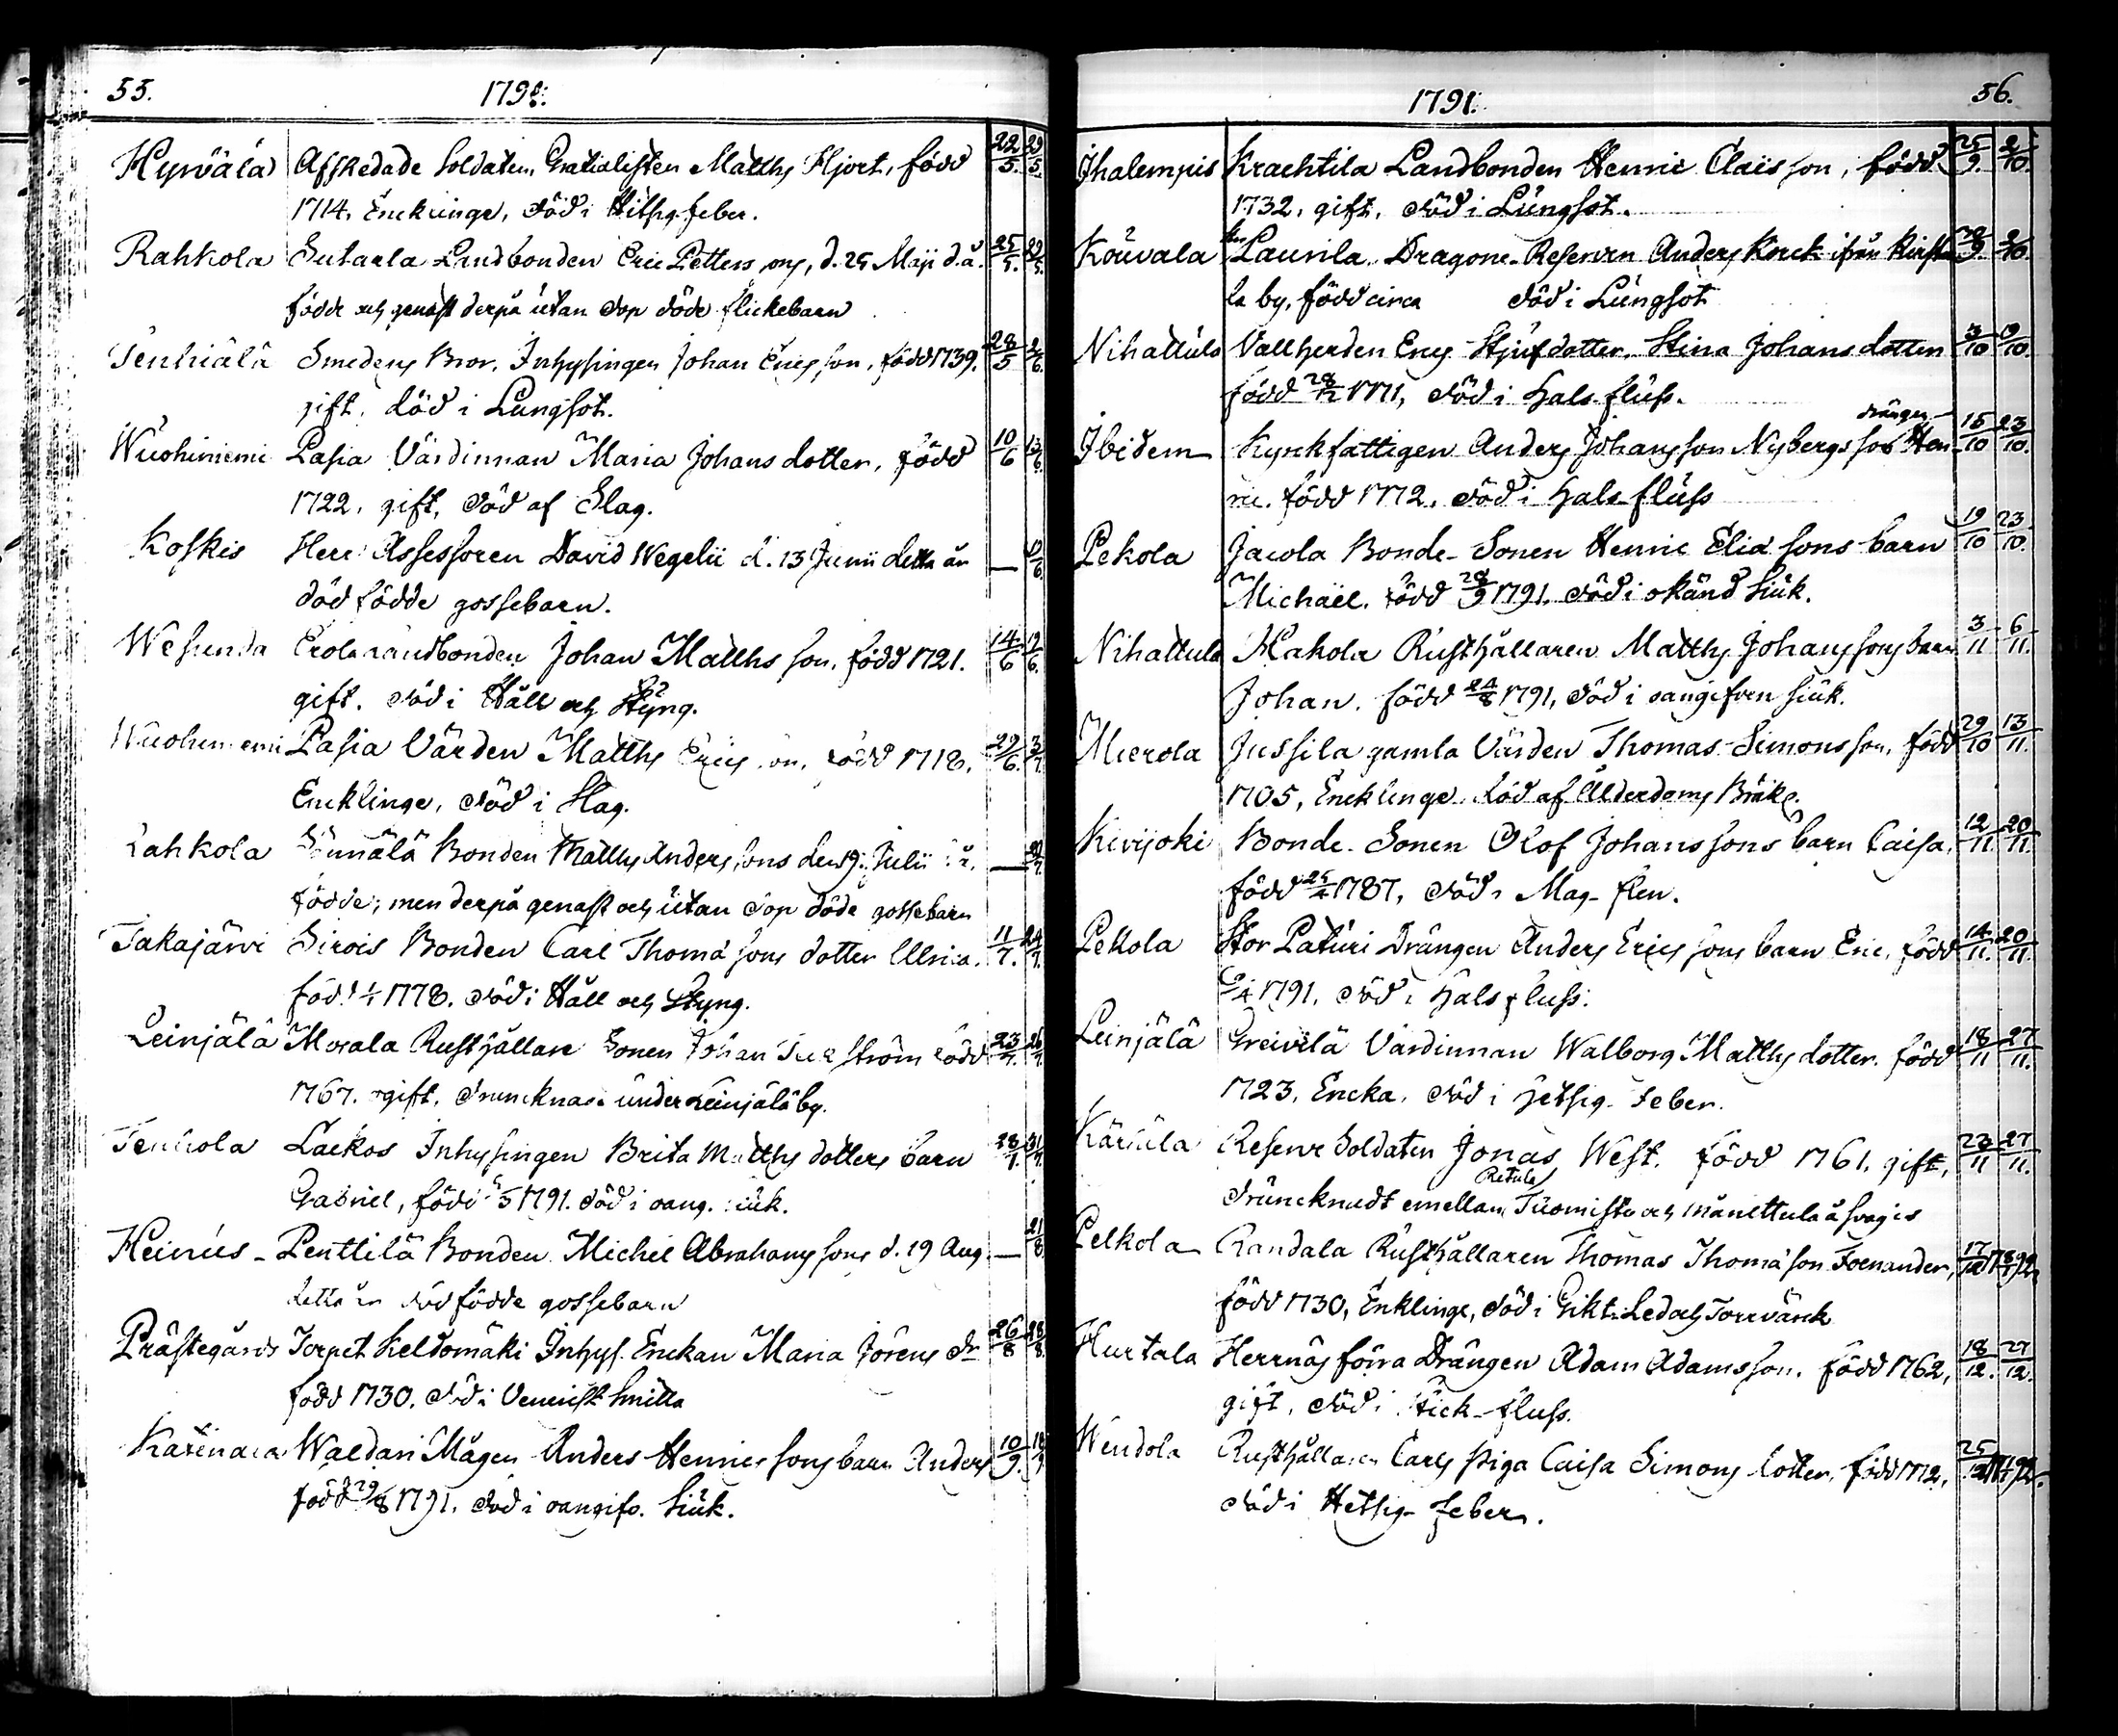 55. 1791.
Hyrvälä Afskedade Soldaten, Gratialisten Matths Hjort, född 22/5. 29/5.
1714, Encklinge, död i Hitsig feber.
Rahkola Sutarla Landbonden Eric Petterssons, d. 25 Maji d. å. 25/5. 29/5.
födde och genast derpå utan dop döde flickebarn
Tenhiälä Smedens Bror, Inhysingen Johan Ericsson, född 1739. 28/5 2/6.
gift, död i Lungsot.
Wuohiniemi Pasia Värdinnan Maria Johans dotter, född 10/6 13/6.
1722, gift, död af Slag.
Koskis Herr Assessoren David Wegelii d. 13 Junii detta år —
död födde gossebarn.
Wesunda Erola Landbonden Johan Matths son, född 1721. 14/6 19/6.
gift. död i Håll och Styng.
Wuohiniemi Pasia Värden Matths Erics son, född 1718, 29/6. 3/7.
Encklinge, död i Slag.
Rahkola Bonden Matths Anderssons den 19 Julii —
födde, men derpå genast och utan dop döde gossebarn
Takajärvi Sirois Bonden Carl Thomæ sons dotter Ulrica. 11/7. 24/7.
född 1778. död i Håll och Styng.
Leinjälä Morala Rusthållare Sonen Johan född 23/7.
1767. ogift, drunknade under Leinjälä by.
Tenhola Laekos Inhysingen Brita Matths dotters barn 28/7. 31/7.
Gabriel, född 1791. död i oang. siuk.
Heinus Penttilä Bonden Michel Abrahams sons d. 19 Aug. — 21/8
detta år död födde gossebarn
Prästegårds Torpet Keldomäki Inhys. Enckan Maria Jörens dr 26/8 28/8.
född 1730. död i Venerisk Smitta
Waldari Mågen Anders Henrics sons barn Anders 10/9.
född 29/8 1791. död i oangifv. Siuk.
1791. 56.
Ihalempis Krachtila Landbonden Henric Clais son, född 25/9. 2/10.
1732, gift, död i Lungsot.
Kouvala Laurila Dragone-Reserven Anders Korck ifrån Kirsta 28/9. 2/10
la by, född circa död i Lungsot
Nihattula Vallherden Erics Stjuf dotter, Stina Johans dotter 3/10 9/10
född 28/12 1771, död i Halsfluss.
Ibidem Kyrckfattigen Anders Johansson Nybergs son drängen Hen- 15/10 23/10.
ric. född 1772. död i Halsfluss
Pekola Jacola Bonde-Sonen Henric Eliæ sons barn 19/10 23/10.
Michaël. född 28/9 1791. död i okänd Siuk.
Nihattula Hakola Rusthållaren Matths Johans sons barn 3/11 6/11.
Johan. född 24/8 1791, död i oangifven siuk.
Mierola Jussila gamla Värden Thomas Simonsson, född 29/10 13/11.
1705, Encklinge. död af Ålderdoms Bräkl.
Kirijoki Bonde-Sonen Olof Johanssons barn Caisa, 12/11. 20/11.
född 25/4 1787, död i Mag-flen.
Pekola Stor Paturi Drängen Anders Erics sons barn Eric, född 14/11. 20/11.
1791, död i halsfluss.
Leinjälä Greivilä Värdinnan Walborg Matths dotter. född 18/11 27/11.
1723, Encka. död i hetsig-feber.
Reserve Soldaten Jonas West. född 1761. gift, 23/11 27/11.
Retula
druncknadt emellan Tuomisto och Mänettula å svag is
Pelkola Randala Rusthållaren Thomas Thomæson Foenander, 17/12
född 1730, Enklinge, död i Gikt. Led och Torrvärck
Hurtala Herrnäs förra Drängen Adam Adamsson. född 1762, 18/12. 27/12.
gift, död i Stick-fluss.
Rusthållaren Carls Piga Caisa Simons dotter, född 1772, 25/12
död i Hetsig-Feber.